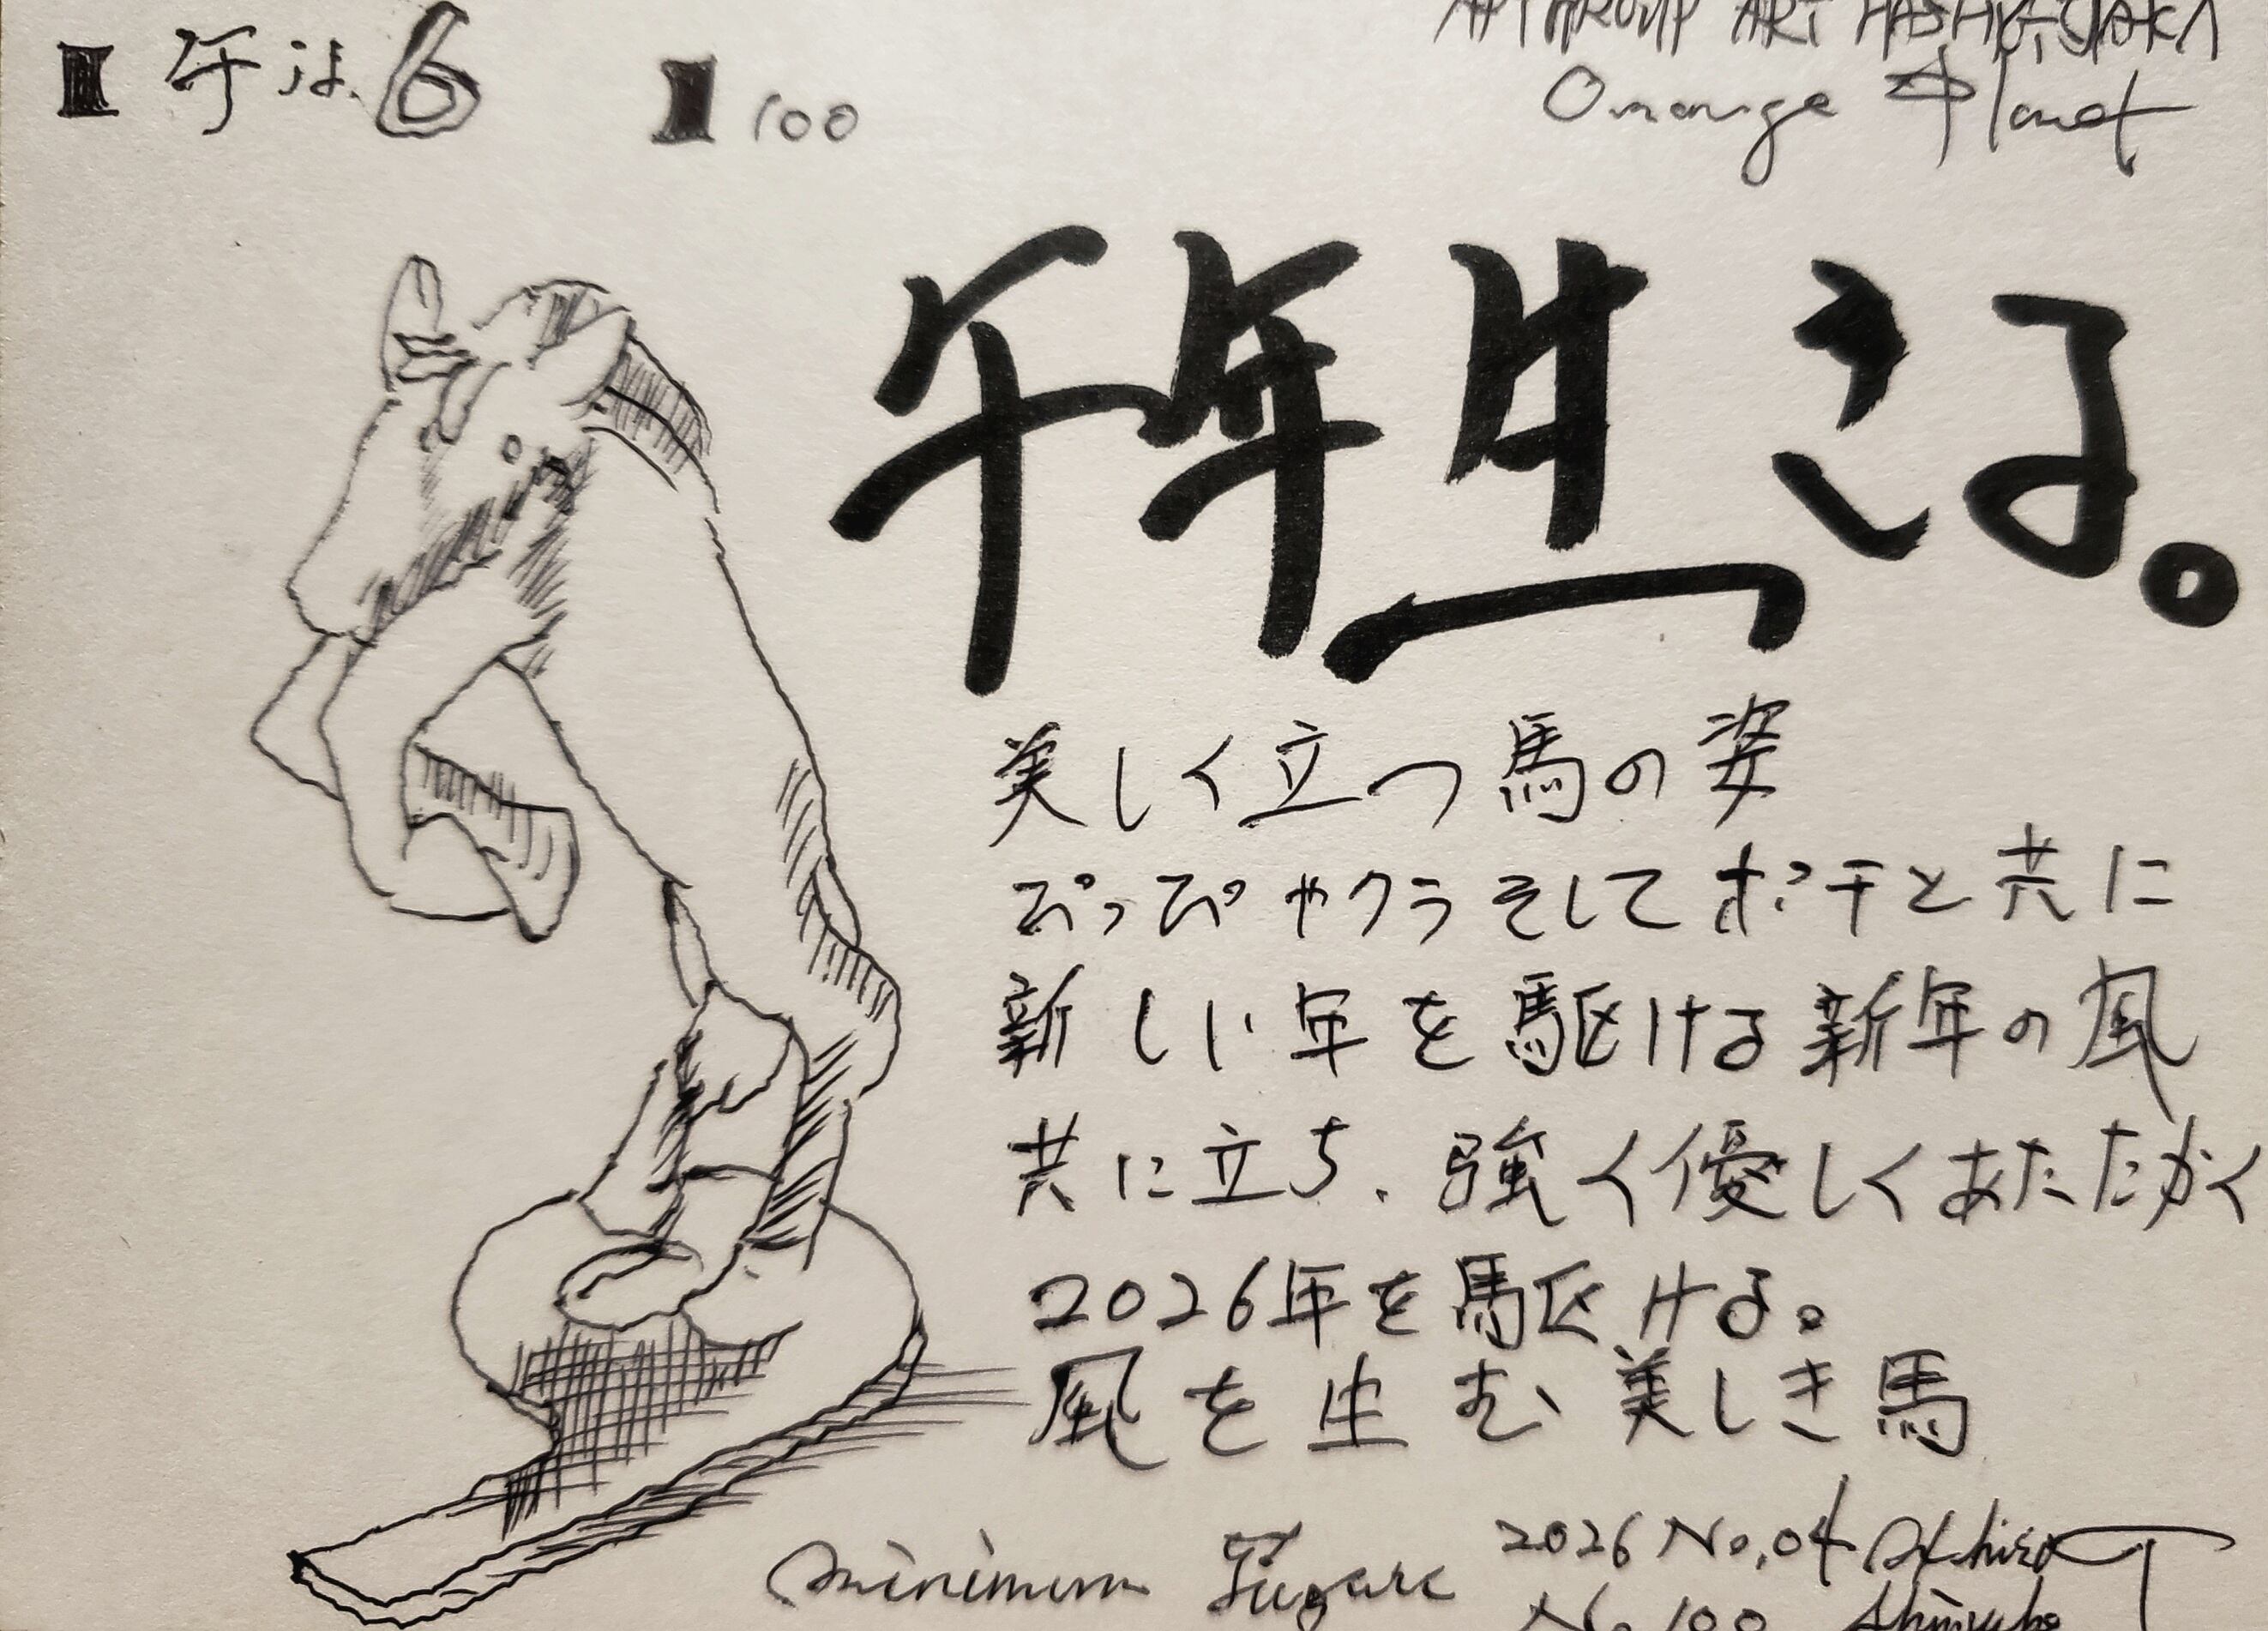 午は 6
100
ART
Orange Planet
千年生きる。
美しく立つ馬の姿
ぴっぴやクラそしてポチと共に
新しい年を駆ける新年の風
共に立ち、強く優しくあたたかく
2026年を駆ける。
風を生む美しき馬
minimum Figure
2026 No.04 Akihiro T
No.100